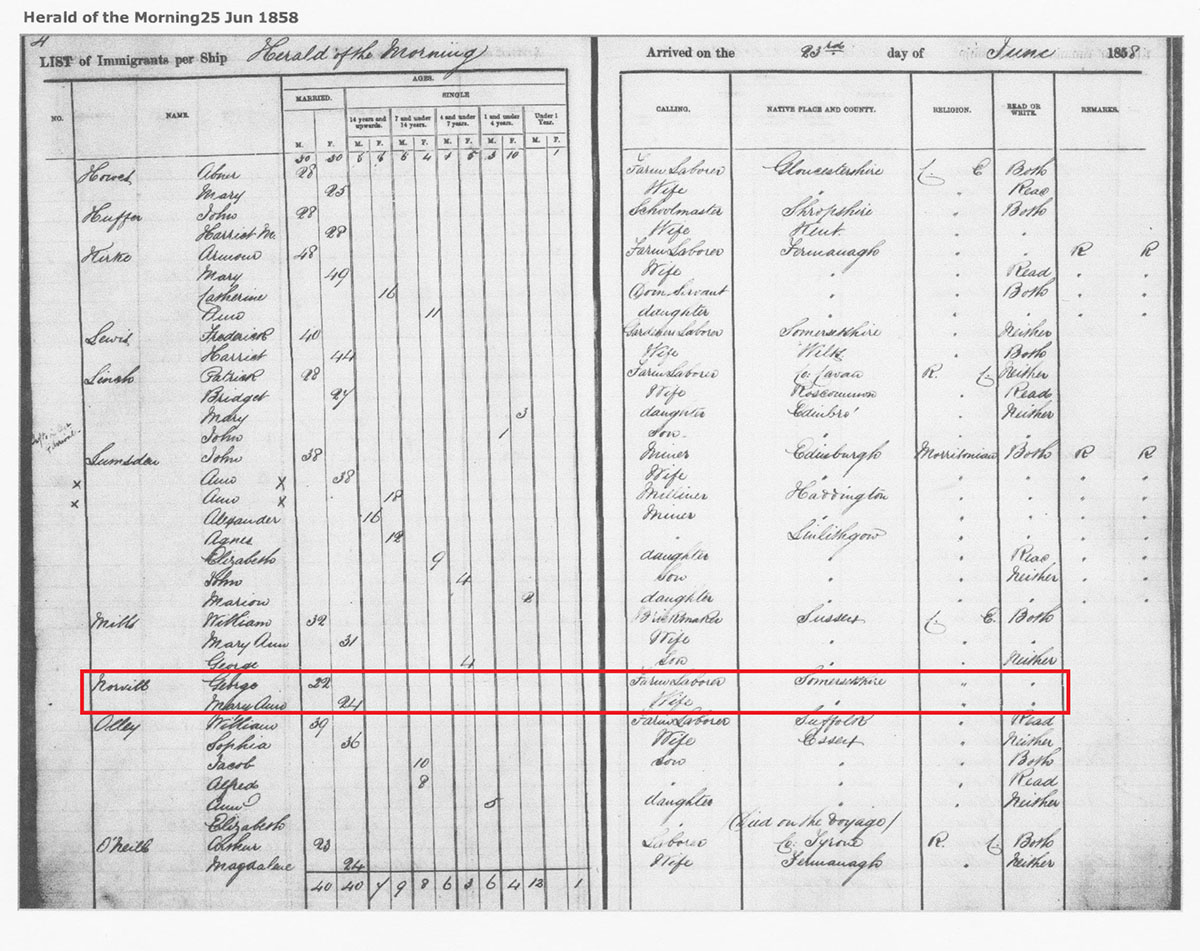 Herald of the Morning25 Jun 1858
4
LIST of Immigrants per Ship Herald of the Morning Arrived on the 23rd day of June 1858
AGES.
MARRIED. SINGLE
NO. NAME. 14 years and upwards. 7 and under 14 years. 4 and under 7 years. 1 and under 4 years. Under 1 Year. CALLING. NATIVE PLACE AND COUNTY. RELIGION. READ OR WRITE. REMARKS.
M. F. M. F. M. F. M. F. M. F. M. F.
30 30 6 6 6 4 1 5 3 10 1
Howes Abner 28 Farm Laborer Gloucestershire C. E Both
Mary 25 Wife " . Read
Huffer John 28 Schoolmaster Shropshire . Both
Harriet M. 28 Wife Kent . .
Kirke Armour 48 Farm Laborer Fermanagh . . R R
Mary 49 Wife " . Read . .
Catherine 16 Dom. Servant " . Both . .
Ann 11 daughter " . . . .
Lewis Frederick 40 Gardener Laborer Somersetshire . Neither
Harriet 44 Wife Wilts . Both
Linch Patrick 28 Farm Laborer Co. Cavan R. C. Neither
Bridget 27 Wife Roscommon . Read
Mary 3 daughter Edinbro' . Neither
John 1 Son " . .
Lumsden John 38 Miner Edinburgh Morrisonian Both R R
x Ann x 38 Wife " . . . .
x Ann x 18 Milliner Haddington . . . .
Alexander 16 Miner " . . . .
Agnes 12 " Linlithgow . . . .
Elizabeth 9 daughter " . Read . .
John 4 Son " . Neither . .
Marion 2 daughter " . . . .
Mills William 32 Brickmaker Sussex C. E. Both
Mary Ann 31 Wife " . .
George 4 Son " . Neither
Norvill George 22 Farm Laborer Somersetshire " .
Mary Ann 24 Wife " " .
Olley William 39 Farm Laborer Suffolk . Read
Sophia 36 Wife Essex . Neither
Jacob 10 Son " . Both
Alfred 8 " " . Read
Ann 5 daughter " . Neither
Elizabeth (Died on the Voyage)
O'Neill Arthur 23 Laborer Co. Tyrone R. C. Both
Magdalene 24 Wife Fermanagh . Neither
40 40 7 9 8 6 3 6 4 12 1